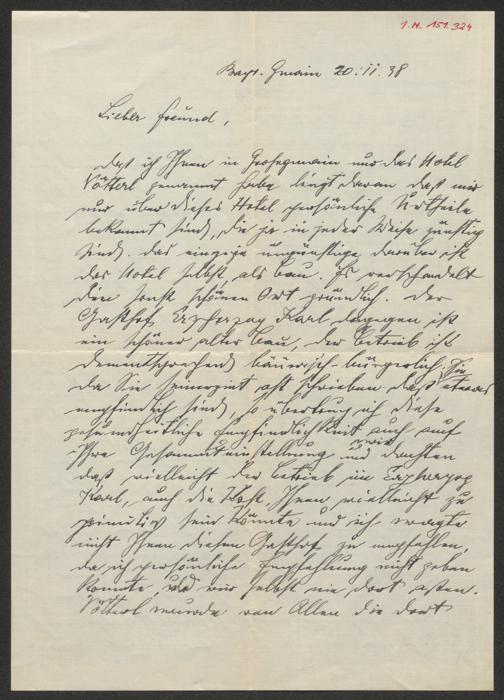 I.N. 151.324
Bayr. Gmain 20.II.38
Lieber Freund,
dass ich Ihnen in Grossgmain nur das Hotel
Vötterl genannt habe, liegt daran dass mir
nur über dieses Hotel persönliche Urteile
bekannt sind, die ja in jeder Weise günstig
sind. Das einzige ungünstige darüber ist
das Hotel selbst, als Bau. Es verschandelt
den sonst schönen Ort gründlich. Der
Gasthof Erzherzog Karl dagegen ist
ein schöner alter Bau, der Betrieb ist
dementsprechend bäurisch-bürgerlich.
da Sie seinerzeit oft schrieben dass Sie etwas
empfindlich sind, so übertrug ich diese
gesundheitliche Empfindlichkeit auch auf
Ihre Gesamteinstellung und dachte
dass vielleicht der Betrieb im Erzherzog
Karl, auch die Kost, Ihnen vielleicht zu
primitiv sein könnte und ich wagte
nicht Ihnen diesen Gasthof zu empfehlen,
da ich persönliche Empfehlung nicht geben
konnte, weil wir selbst nie dort assen.
Vötterl wurde von Allen die dort